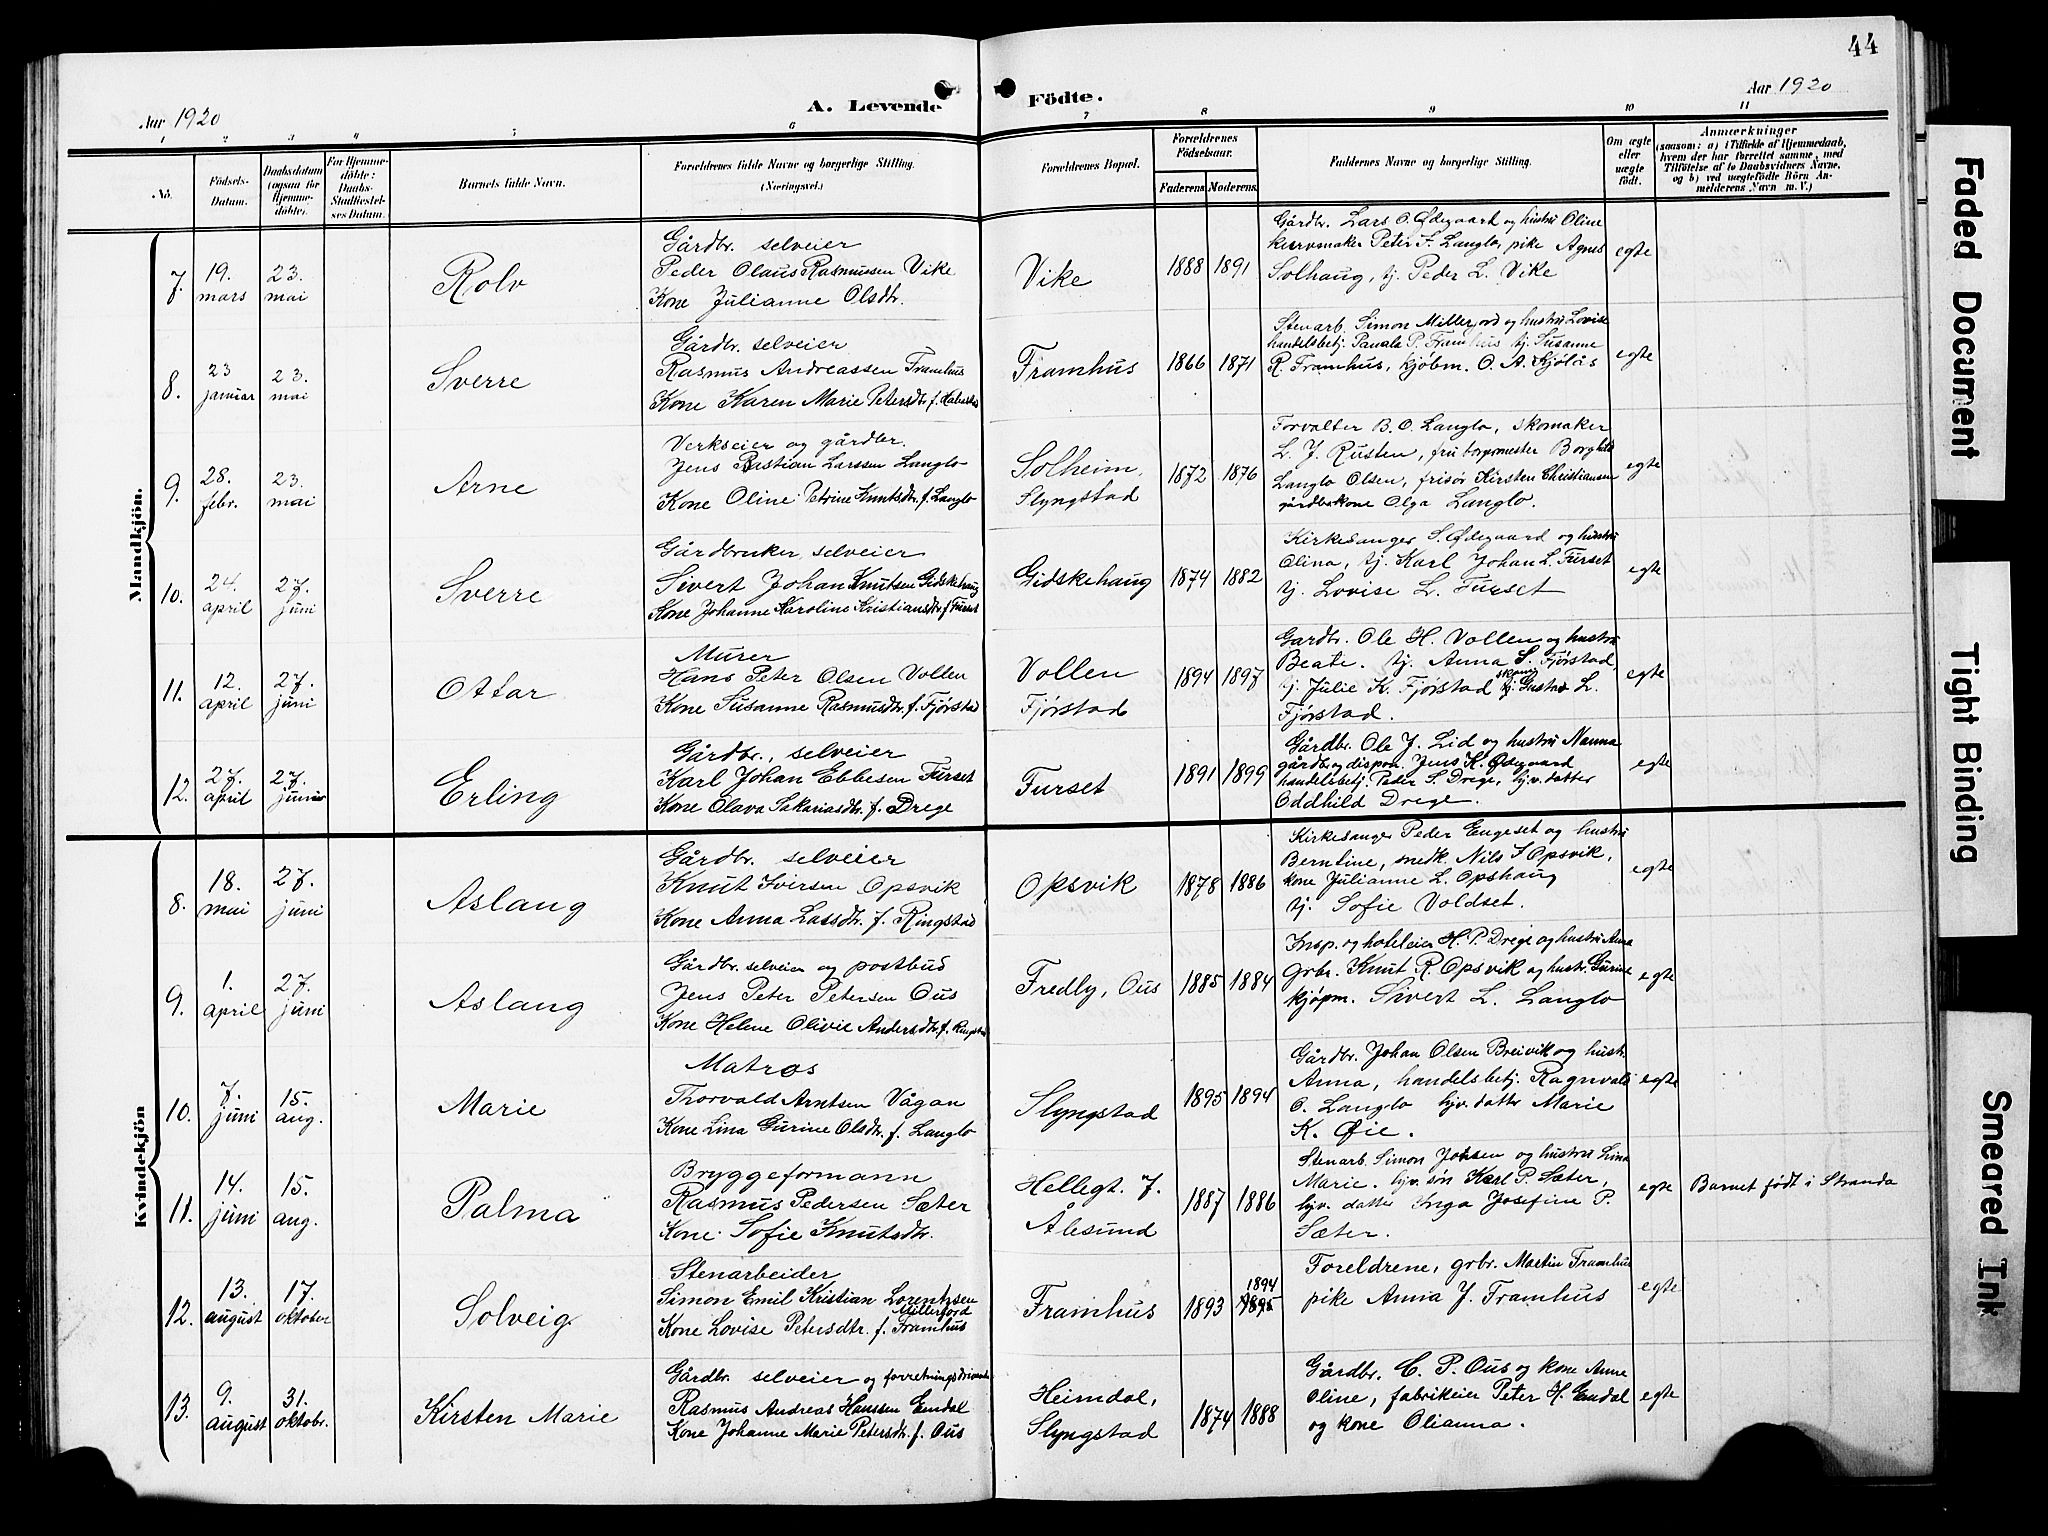 44
Aar 1920
A. Levende Födte.
Aar 1920
1 2 3 4 5 6 7 8 9 10 11
No.
Födsels-
Datum.
Daabsdatum
(ogsaa for
Hjemme-
döbte).
For Hjemme-
döbte:
Daabs-
Stadfæstel-
ses Datum.
Barnets fulde Navn.
Forældrenes fulde Navne og borgerlige Stilling.
(Næringsvei.)
Forældrenes Bopæl.
Forældrenes
Födselsaar.
Faderens Moderens
Faddernes Navne og borgerlige Stilling.
Om ægte
eller
uægte
födt.
Anmærkninger
(saasom: a) i Tilfælde af Hjemmedaab,
hvem der har forrettet samme, med
Tilföielse af to Daabsvidners Navne,
og b) ved uægtefödte Börn An-
melderens Navn m. V.)
Mandkjön.
7. 19. mars
23. mai
Rolv
Gårdbr. selveier
Peder Olaus Rasmussen Vike
Kone Julianne Olsdtr.
Vike
1888 1891
Gårdbr. Lars O. Ødegaard og hustru Oline
kurvmaker Peter S. Langlo, pike Agnes
Solhaug, tj. Peder L. Vike
egte
8. 23 januar
23. mai
Sverre
Gårdbr. selveier
Rasmus Andreassen Framhus
Kone Karen Marie Petersdtr. f.
Framhus
1866 1871
Stenarb. Simon Millerjord og hustru Lovise
handelsbetj. Paula P. Framhus tj. Susanne
R. Framhus, kjöbm. O. A. Kjölås
egte
9. 28. febr.
23. mai
Arne
Verkseier og gårdbr.
Jens Bastian Larssen Langlo
Kone Oline Petrine Knutsdtr. f. Langlo
Solheim,
Slyngstad
1872 1876
Forvalter B. O. Langlo, skomaker
L. J. Rusten, fru borgermester Borghild
Langlo Olsen, frisør Kirsten Christiansen
gårdbr.kone Olga Langlo.
egte
10. 24. april
27. juni
Sverre
Gårdbruker, selveier
Sivert Johan Knutsen Gidskehaug
Kone Johanne Karoline Kristiansdtr. f. Furset
Gidskehaug
1874 1882
Kirkesanger S. Ødegaard og hustru
Olina, tj. Karl Johan L. Furset
tj. Lovise L. Furset
egte
11. 12. april
27. juni
Ottar
Murer
Hans Peter Olsen Vollen
Kone Susanne Rasmusdtr. f. Fjørstad
Vollen
Fjørstad
1894 1897
Gardbr. Ole H. Vollen og hustru
Beate. tj. Anna S. Fjørstad,
tj. Julie K. Fjørstad tj. Gustav L.
Fjørstad.
egte
12. 27. april
27. juni
Erling
Gårdbr., selveier
Karl Johan Ebbesen Furset
Kone Olava Sakariasdtr. f. Drege
Furset
1891 1899
Gårdbr. Ole J. Lid og hustru Nanna
gårdbr. og dispon. Jens K. Ødegaard
handelsbetj. Peder S. Drege, hjv. datter
Oddhild Drege.
egte
Kvindekjön
8. 18. mai
27. juni
Aslaug
Gårdbr. selveier
Knut Iversen Opsvik
Kone Anna Lassdtr. f. Ringstad
Opsvik
1878 1886
Kirkesanger Peder Engeset og hustru
Berntine, snedk. Nils I Opsvik,
kone Julianne L. Opshaug
tj. Sofie Voldset.
egte
9. 1. april
27. juni
Aslaug
Gårdbr. selveier og postbud
Jens Peter Petersen Ous
Kone Helene Olivie Andersdtr. f. Ringstad
Fredly, Ous
1885 1884
Insp. og hoteleier H. P. Drege og hustru Anna
grbr. Knut R. Opsvik og hustr. Gurine
kjøpm. Sivert L. Langlo
egte
10. 7. juni
15. aug.
Marie
Matros
Thorvald Arntsen Vågan
Kone Lina Gurine Olsdtr. f. Langlo
Slyngstad
1895 1894
Gårdbr. Johan Olsen Breivik og hust.
Anna, handelsbetj. Ragnvald
O. Langlo hjv. datter Marie
K. Øie.
egte
11. 14. juni
15. aug.
Palma
Bryggeformann
Rasmus Pedersen Sæter
Kone Sofie Knutsdtr.
Hellegt. 7.
Ålesund
1887 1886
Stenarb. Simon Johsen og hustru Lina
Marie. hjv. sön Karl P. Sæter,
hjv. datter Inga Josefine P.
Sæter.
egte
Barnet født i Stranda
12. 13. august
17. oktober
Solveig
Stenarbeider
Simon Emil Kristian Lorentzsen
Millerjord
Kone Lovise Petersdtr. f. Framhus
Framhus
1893 1894 1895
Foreldrene, grbr. Martin Framhus
pike Anna J. Framhus
egte
13. 9. august
31. oktobr.
Kirsten Marie
Gårdbr. selveier og forretningsdrivende
Rasmus Andreas Hanssen Emdal
Kone Johanne Marie Petersdtr. f. Ous
Heimdal,
Slyngstad
1874 1888
Gårdbr. C. P. Ous og kone Anne
Oline, fabrikeier Peter H. Emdal
og kone Olianna.
egte
Faded Document
Tight Binding
Smeared Ink